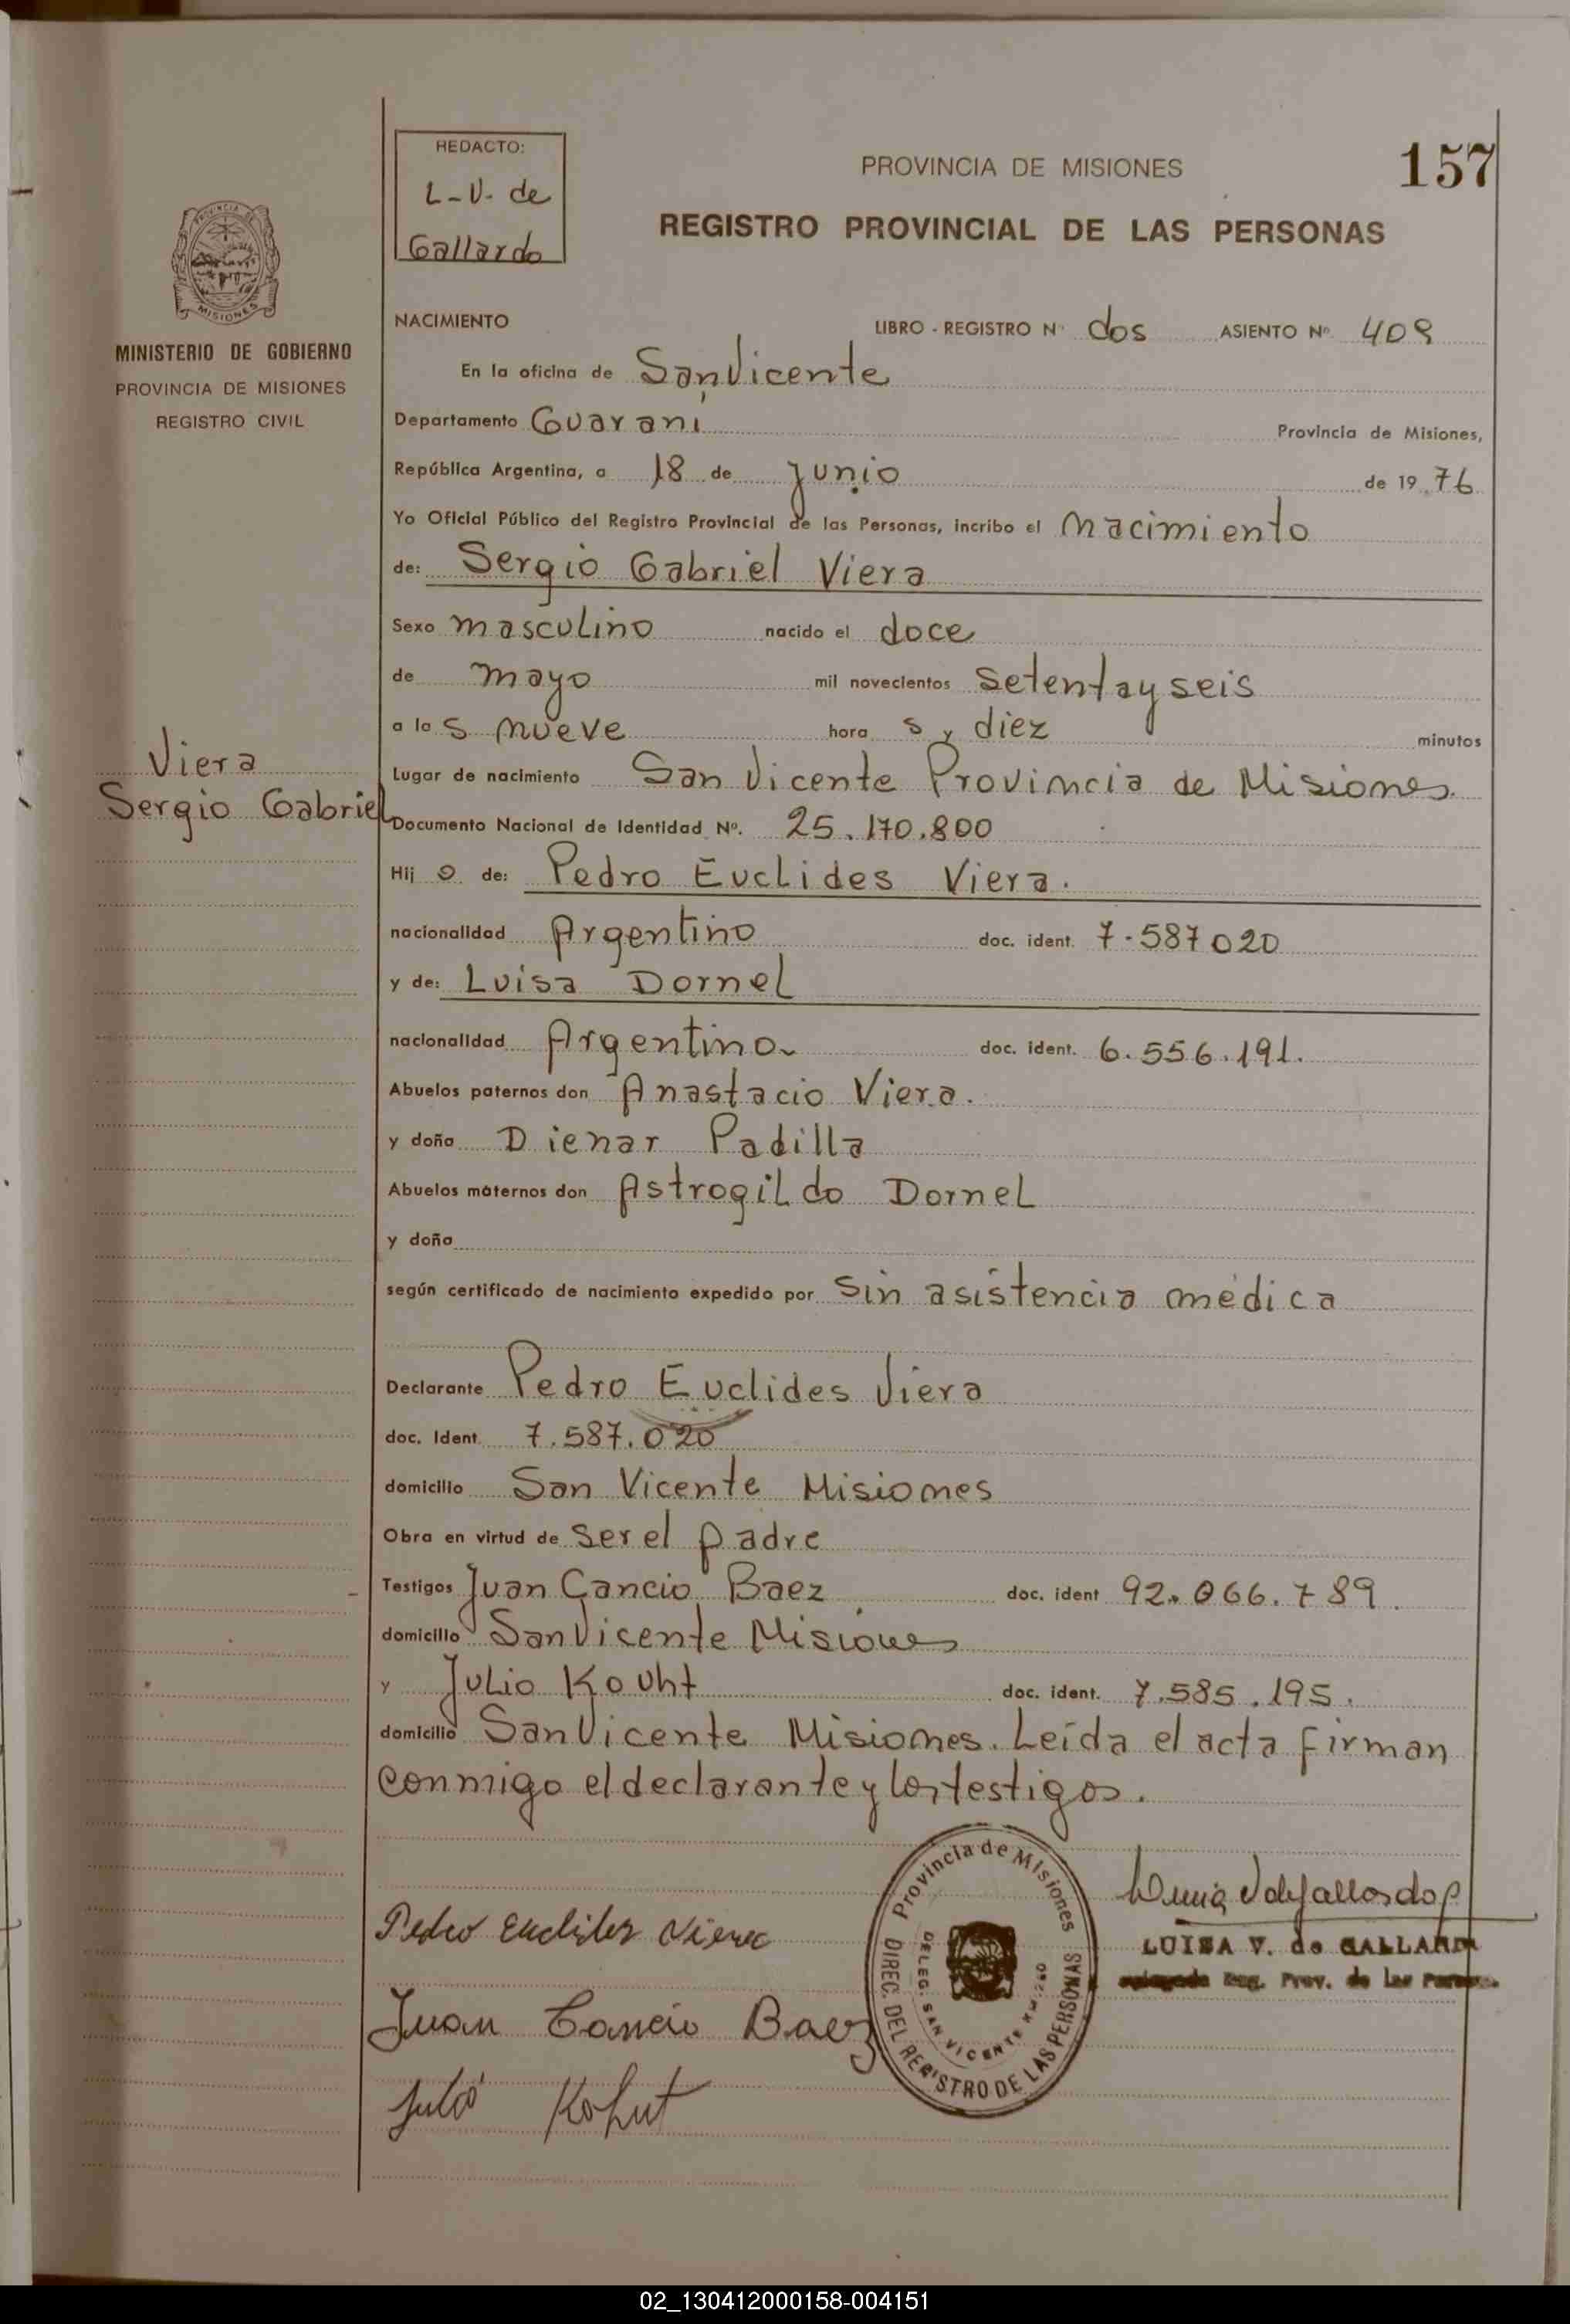 REDACTO:
L-V. de
Gallardo
PROVINCIA DE MISIONES
157
REGISTRO PROVINCIAL DE LAS PERSONAS
PROVINCIA DE MISIONES
MINISTERIO DE GOBIERNO
PROVINCIA DE MISIONES
REGISTRO CIVIL
NACIMIENTO LIBRO - REGISTRO Nº dos ASIENTO Nº 409
En la oficina de San Vicente
Departamento Guaraní Provincia de Misiones,
República Argentina, a 18 de junio de 19 76
Yo Oficial Público del Registro Provincial de las Personas, incribo el Nacimiento
de: Sergio Gabriel Viera
Sexo masculino nacido el doce
de mayo mil novecientos setentayseis
a las nueve horas y diez minutos
Viera
Sergio Gabriel
Lugar de nacimiento San Vicente Provincia de Misiones.
Documento Nacional de Identidad Nº. 25.170.800
Hijo de: Pedro Euclides Viera.
nacionalidad Argentino doc. ident. 7-587020
y de: Luisa Dornel
nacionalidad Argentino doc. ident. 6.556.191.
Abuelos paternos don Anastacio Viera.
y doña Dienar Padilla
Abuelos maternos don Astrogildo Dornel
y doña
según certificado de nacimiento expedido por Sin asistencia médica
Declarante Pedro Euclides Viera
doc. Ident. 7.587.020
domicilio San Vicente Misiones
Obra en virtud de ser el padre
Testigos Juan Cancio Baez doc. ident 92.066.789.
domicilio San Vicente Misiones
y Julio Kouht doc. ident. 7.585.195.
domicilio San Vicente Misiones. Leída el acta firman
conmigo el declarante y los testigos.
Pedro Euclides Viera
Juan Cancio Baez
Julio Kohut
Provincia de Misiones
DIREC. DEL REGISTRO DE LAS PERSONAS
DELEG. SAN VICENTE KM. 260
LUISA V. de GALLARDO
Reg. Prov. de las
02_130412000158-004151